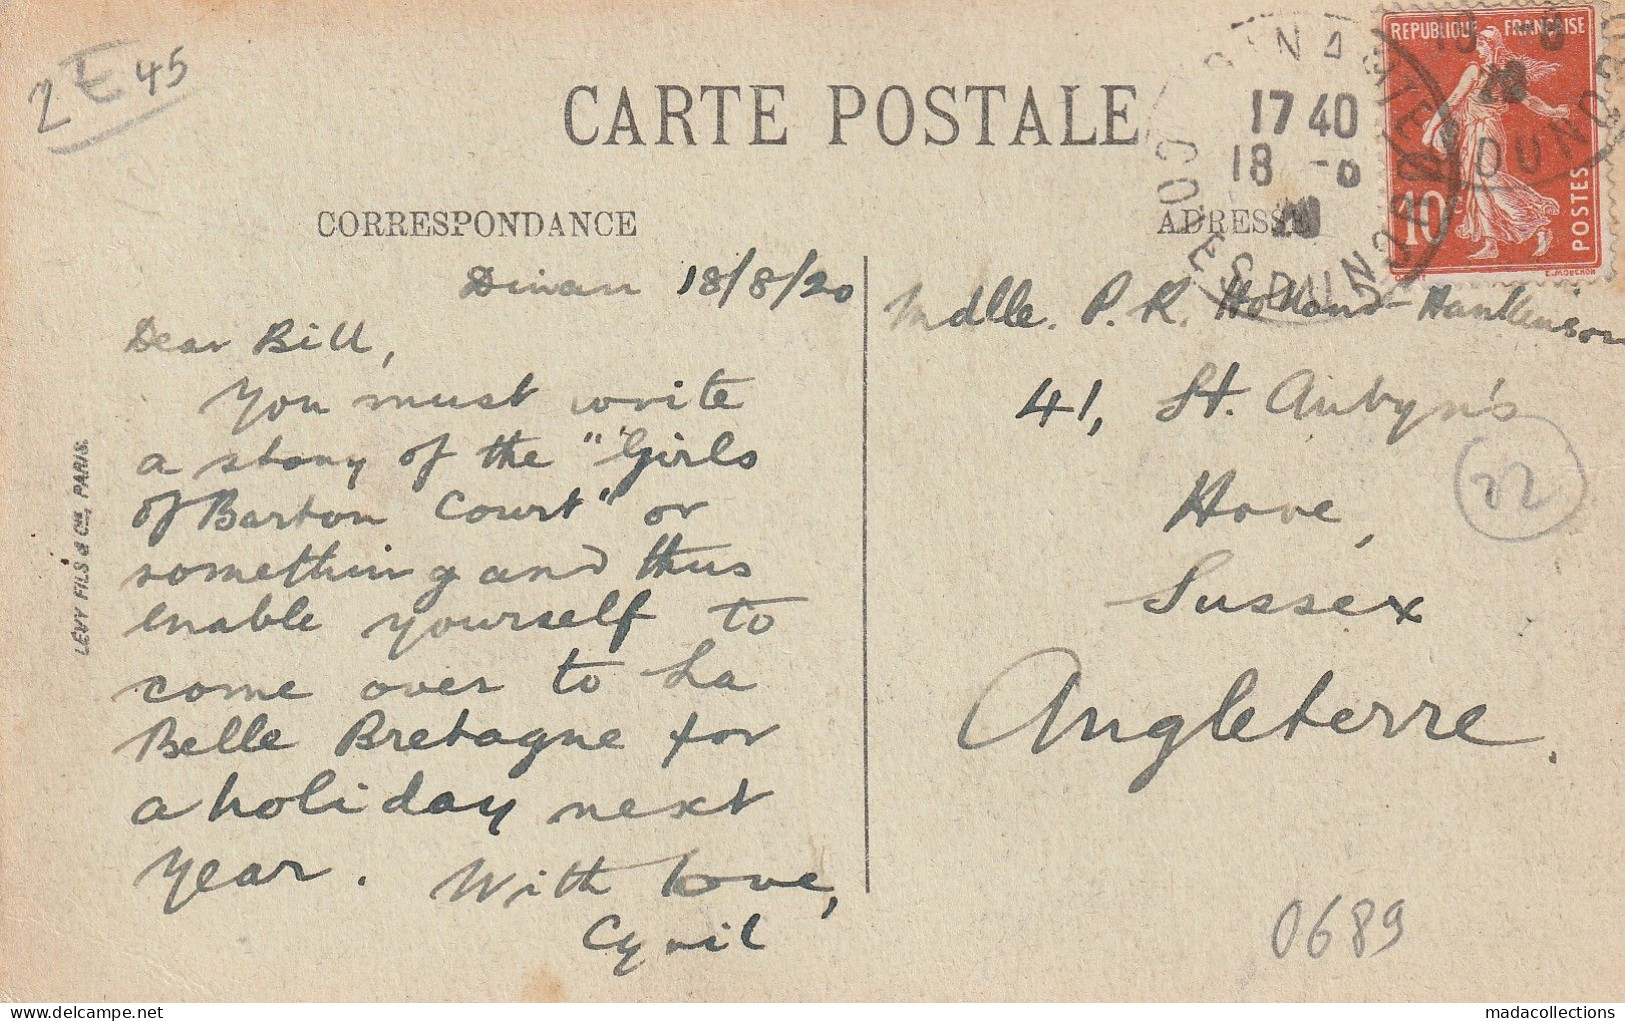 2 E 45
CARTE POSTALE
CORRESPONDANCE
ADRESSE
REPUBLIQUE FRANÇAISE
10c
POSTES
E. MOUCHON
DINAN
17 40
18 -8
20
COTES DU NORD
Dinan 18/8/20
Dear Bill,
You must write
a story of the "Girls
of Barton Court" or
something and thus
enable yourself to
come over to La
Belle Bretagne for
a holiday next
year. With love,
Cyril
Mdlle. P. R. Holland-Hankinson
41, St. Aubyn's
Hove,
Sussex
Angleterre.
22
0689
LÉVY FILS & Cie, PARIS.
madacollections